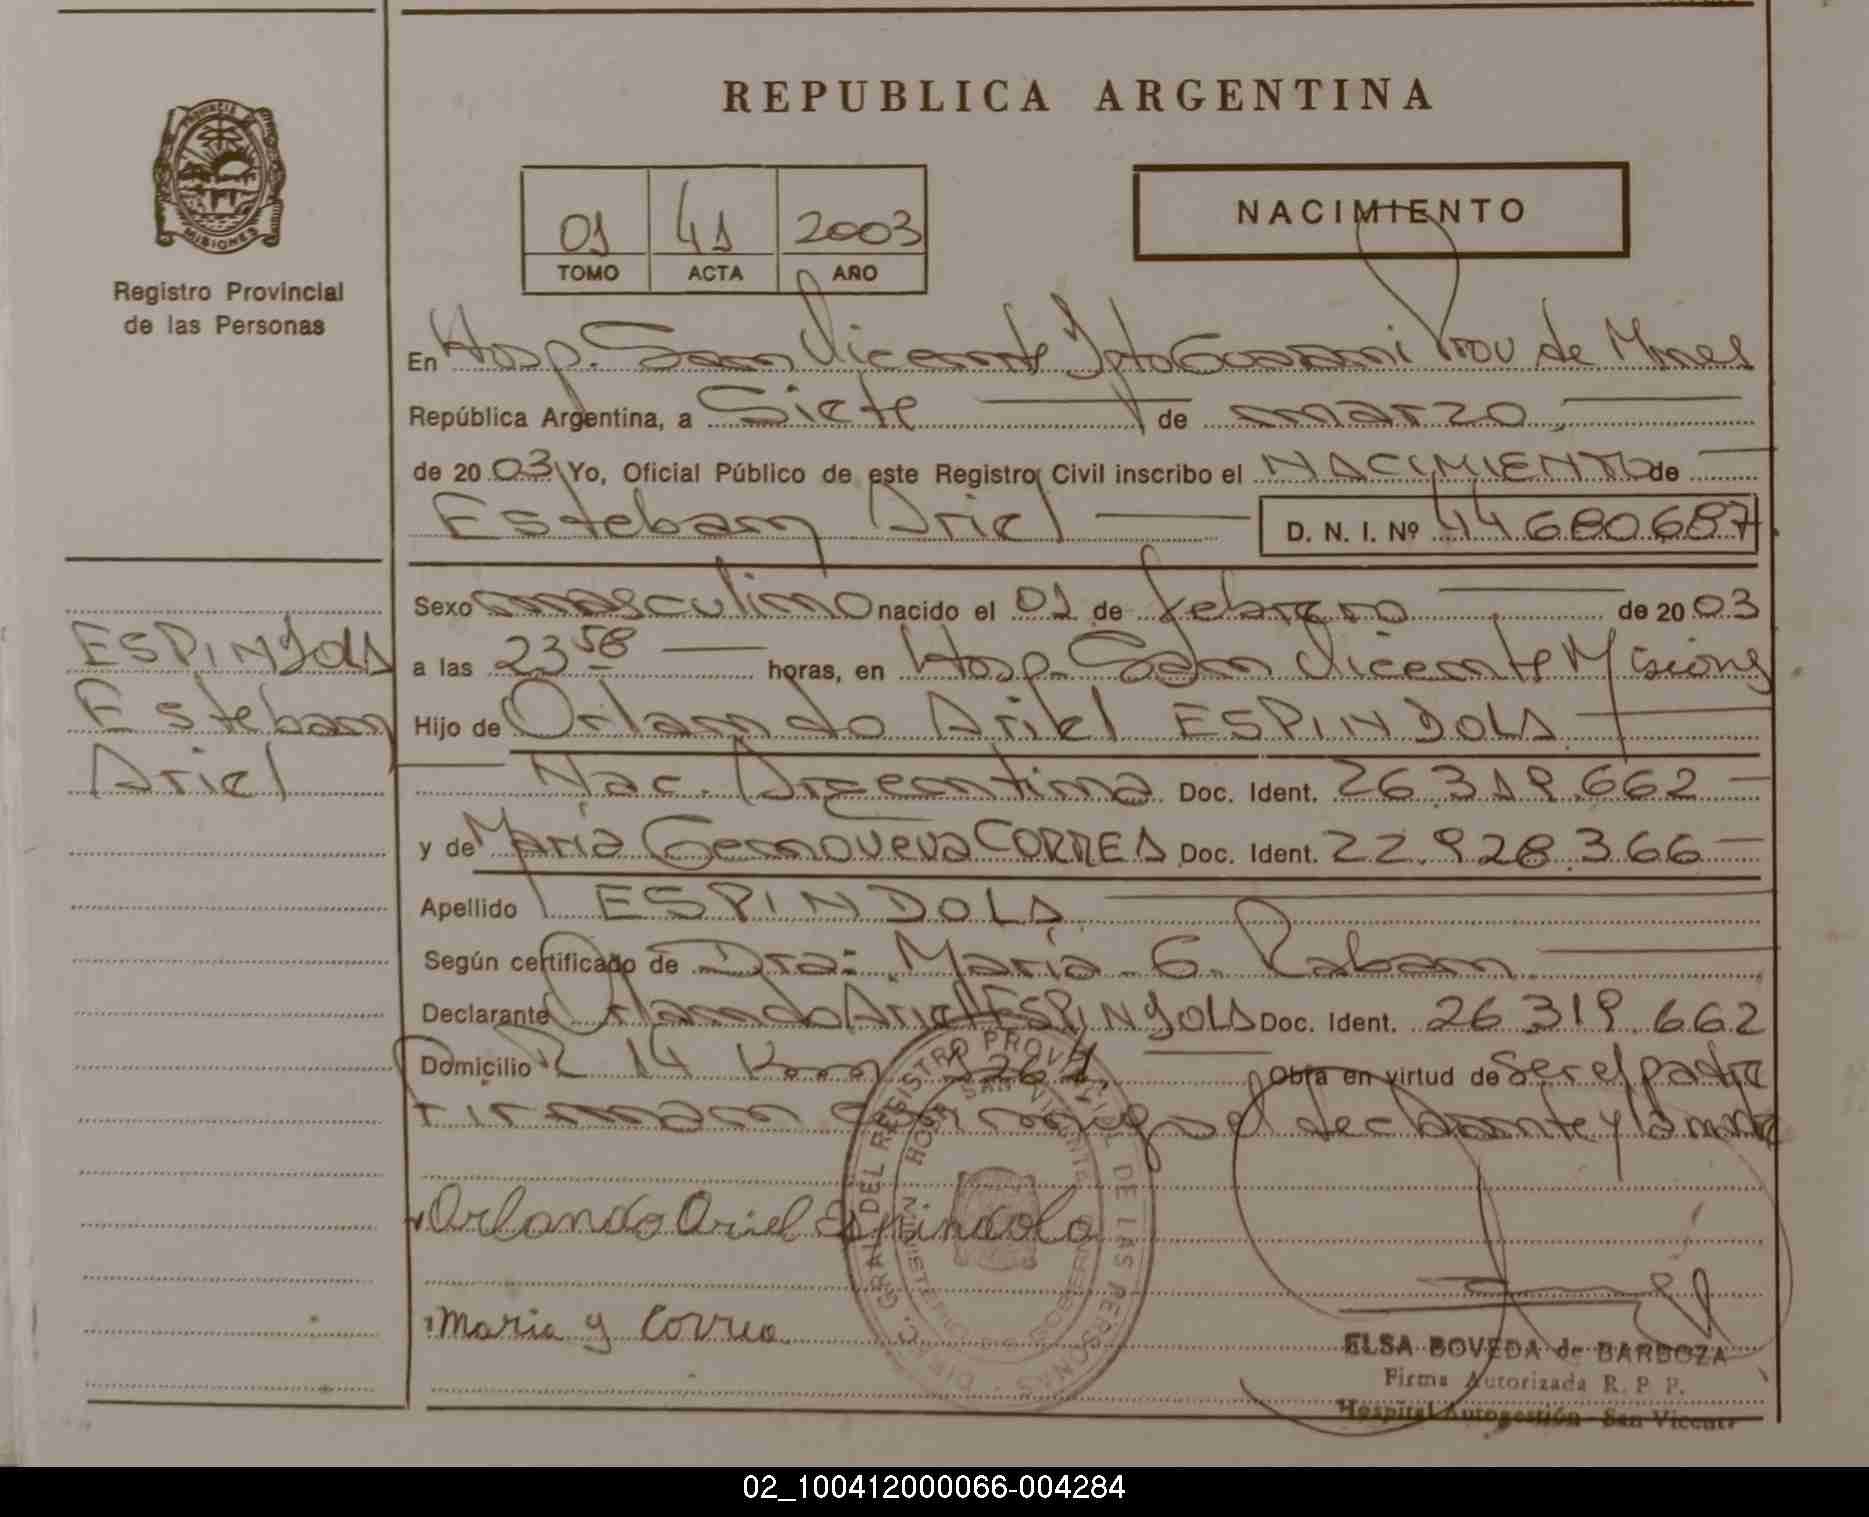 REPUBLICA ARGENTINA
PROVINCIA DE
MISIONES
Registro Provincial
de las Personas
01 41 2003
TOMO ACTA AÑO
NACIMIENTO
En Hosp. San Vicente Dpto Guarani Prov de Mnes
República Argentina, a Siete de marzo
de 20 03 Yo, Oficial Público de este Registro Civil inscribo el NACIMIENTO de
Esteban Ariel D. N. I. Nº 44680687
Sexo masculino nacido el 01 de febrero de 20 03
a las 23 58 horas, en Hosp. San Vicente Misiones
Hijo de Orlando Ariel ESPINDOLA
Nac. Argentina Doc. Ident. 26.319.662
y de Maria Genoveva CORREA Doc. Ident. 22.928.366
Apellido ESPINDOLA
Según certificado de Dra: Maria G. Raban
Declarante Orlando Ariel ESPINDOLA Doc. Ident. 26.319.662
Domicilio R 14 Km Obra en virtud de Ser el padre
Firman conmigo el declarante y la madre
Orlando Ariel Espindola
Maria y Correa
ESPINDOLA
Esteban
Ariel
DIREC. GRAL DEL REGISTRO PROVINCIAL DE LAS PERSONAS
HOSP. SAN VICENTE
ELSA BOVEDA de BARBOZA
Firma Autorizada R. P. P.
Hospital Autogestión - San Vicente
02_100412000066-004284